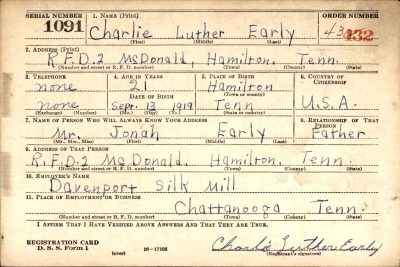 SERIAL NUMBER 1. NAME (Print) ORDER NUMBER
1091 Charlie Luther Early 432
(First) (Middle) (Last)
2. ADDRESS (Print)
R.F.D.2 McDonald, Hamilton, Tenn.
(Number and street or R. F. D. number) (Town) (County) (State)
3. TELEPHONE 4. AGE IN YEARS 5. PLACE OF BIRTH 6. COUNTRY OF CITIZENSHIP
none 21 Hamilton
DATE OF BIRTH (Town or county)
none Sept. 13 1919 Tenn U.S.A.
(Exchange) (Number) (Mo.) (Day) (Yr.) (State or country)
7. NAME OF PERSON WHO WILL ALWAYS KNOW YOUR ADDRESS 8. RELATIONSHIP OF THAT PERSON
Mr. Jonah Early Father
(Mr., Mrs., Miss) (First) (Middle) (Last)
9. ADDRESS OF THAT PERSON
R.F.D.2 McDonald, Hamilton, Tenn.
(Number and street or R. F. D. number) (Town) (County) (State)
10. EMPLOYER'S NAME
Davenport Silk Mill
11. PLACE OF EMPLOYMENT OR BUSINESS
Chattanooga Tenn.
(Number and street or R. F. D. number) (Town) (County) (State)
I AFFIRM THAT I HAVE VERIFIED ABOVE ANSWERS AND THAT THEY ARE TRUE.
REGISTRATION CARD
D. S. S. Form 1 (over) 16—17105 Charlie Luther Early
(Registrant's signature)